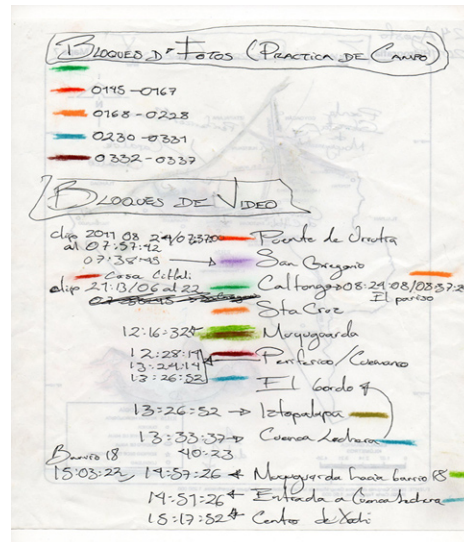 BLOQUES D' FOTOS (PRACTICA DE CAMPO)
0145-0167
0168-0228
0230-0331
0332-0337
BLOQUES DE VIDEO
clip 2011 08 24/07:37:20 Puente de Urrutia
al 07:57:42
07:38:45 → San Gregorio
Casa Citlali
clip 21:13/06 al 22 Caltongo → 08:24:08/08:37:2
El pariso
Sta Cruz
12:16:32 Muyuguarda
12:28:19 Periferico/Cuemanco
13:24:14
13:26:52 El bordo
13:26:52 → Iztapalapa
13:33:37 → Cuenca Lechera
40:23
Barrio 18
15:03:22 14:57:26 Muyuguarda hacia barrio 18
14:51:26 Entrada a Cuenca Lechera
15:17:52 Centro de Xochi